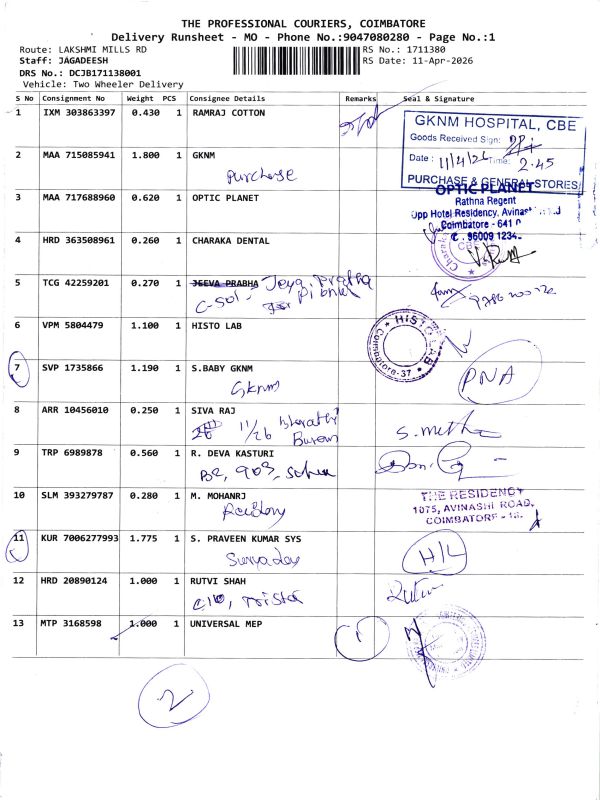 THE PROFESSIONAL COURIERS, COIMBATORE
Delivery Runsheet - MO - Phone No.:9047080280 - Page No.:1
Route: LAKSHMI MILLS RD RS No.: 1711380
Staff: JAGADEESH RS Date: 11-Apr-2026
DRS No.: DCJB171138001
Vehicle: Two Wheeler Delivery
S No Consignment No Weight PCS Consignee Details Remarks Seal & Signature
1 IXM 303863397 0.430 1 RAMRAJ COTTON
GKNM HOSPITAL, CBE
Goods Received Sign:
Date: 11/4/26 Time: 2.45
PURCHASE & GENERAL STORES
2 MAA 715085941 1.800 1 GKNM
Purchase
3 MAA 717688960 0.620 1 OPTIC PLANET
OPTIC PLANET
Rathna Regent
Opp Hotel Residency, Avinashi
Coimbatore - 641
4 HRD 363508961 0.260 1 CHARAKA DENTAL
5 TCG 42259201 0.270 1 JEEVA PRABHA
6 VPM 5804479 1.100 1 HISTO LAB
HISTO LAB
Coimbatore-37
7 SVP 1735866 1.190 1 S.BABY GKNM
Gknm
PNA
8 ARR 10456010 0.250 1 SIVA RAJ
11/26
9 TRP 6989878 0.560 1 R. DEVA KASTURI
B2, 903,
10 SLM 393279787 0.280 1 M. MOHANRJ
Residency
THE RESIDENCY
1075, AVINASHI ROAD,
COIMBATORE - 18.
11 KUR 7006277993 1.775 1 S. PRAVEEN KUMAR SYS
Suryadev
H/L
12 HRD 20890124 1.000 1 RUTVI SHAH
C10, Trista
Rutvi
13 MTP 3168598 1.000 1 UNIVERSAL MEP
1
2